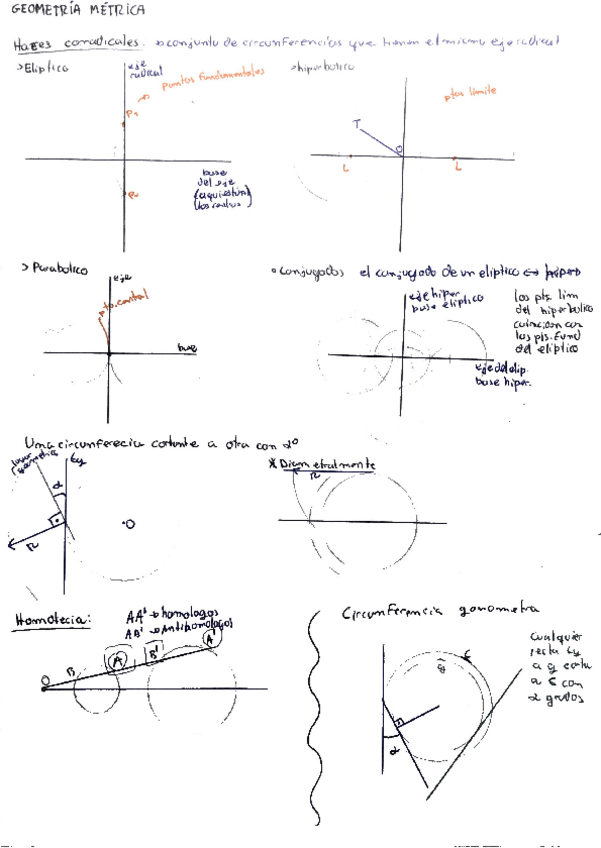 GEOMETRÍA MÉTRICA
Haces corradicales. → conjunto de circunferencias que tienen el mismo eje radical
> Elíptico
eje
radical
puntos fundamentales
P1
P2
base
del eje
(aquí están
los centros)
> hiperbolico
ptos límite
T
O
L
L
> Parabolico
eje
pto. central
base
• conjugados el conjugado de un eliptico ⟷ hiperb
eje hiper
base eliptico
los pts. lim
del hiperbolico
coinciden con
los pts. fund
del eliptico
eje del elip.
base hiper.
Una circunferecia cortante a otra con α°
lugar
geometrico
tg
α
R
·O
* Diametralmente
R
Homotecia:
AA' → homologos
AB' → Antihomologos
O
B
A
B'
A'
Circunferencia gonometra
Cualquier
recta tg
a g corta
a c con
α grados
g
c
α